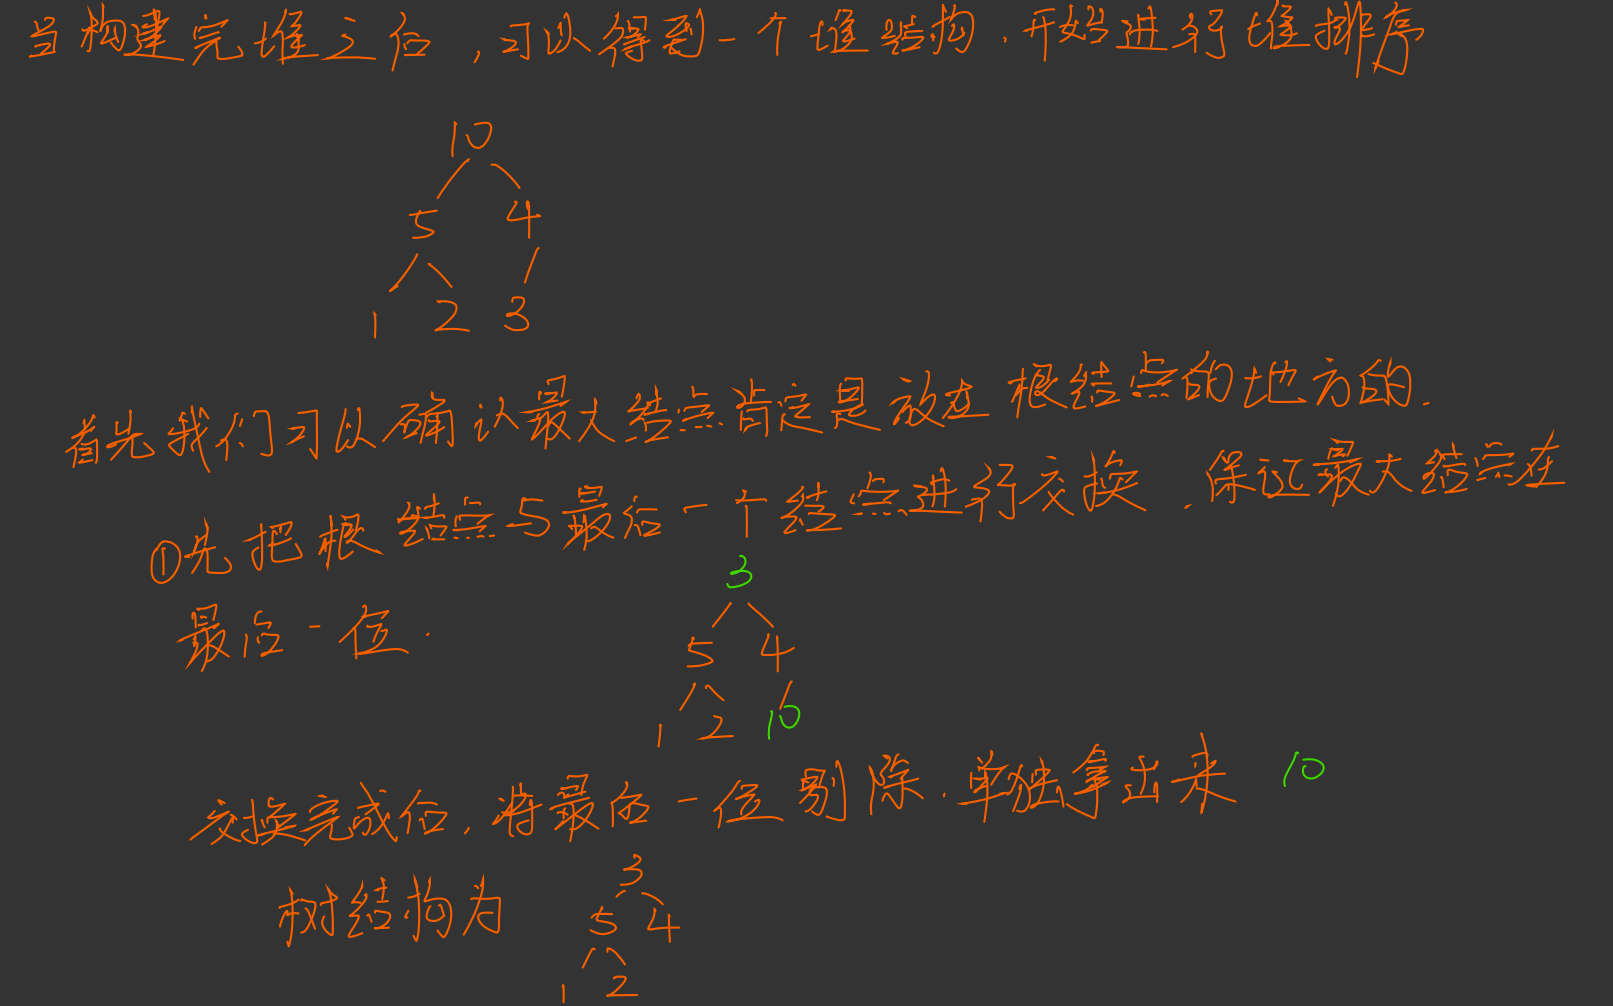 当构建完堆之后,可以得到一个堆结构.开始进行堆排序
10
5 4
1 2 3
首先我们可以确认最大结点肯定是放在根结点的地方的.
①先把根结点与最后一个结点进行交换.保证最大结点在
最后一位.
3
5 4
1 2 10
交换完成后,将最后一位剔除.单独拿出来 10
树结构为
3
5 4
1 2